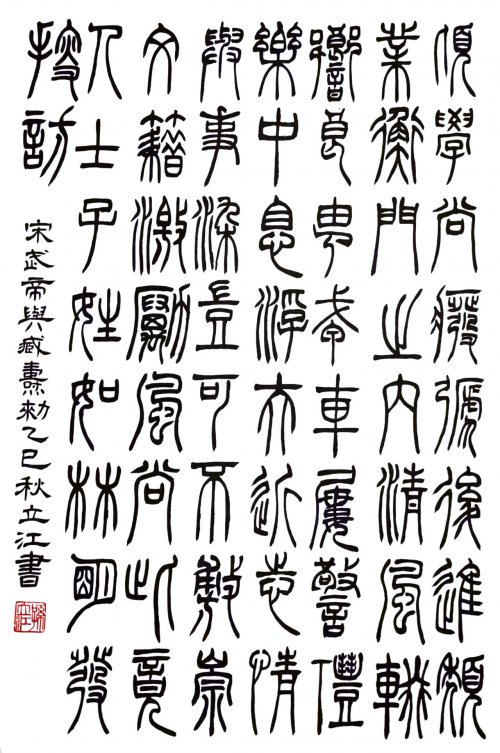 頃學尚廢弛後進頹
業衡門之內清風輟
響良由戎車屢警禮
樂中息浮夫近志情
與事染豈可不敷崇
文籍激勵風尚此竟
人士子姪如林明發
搜訪
宋武帝與臧燾勑乙巳秋立江書